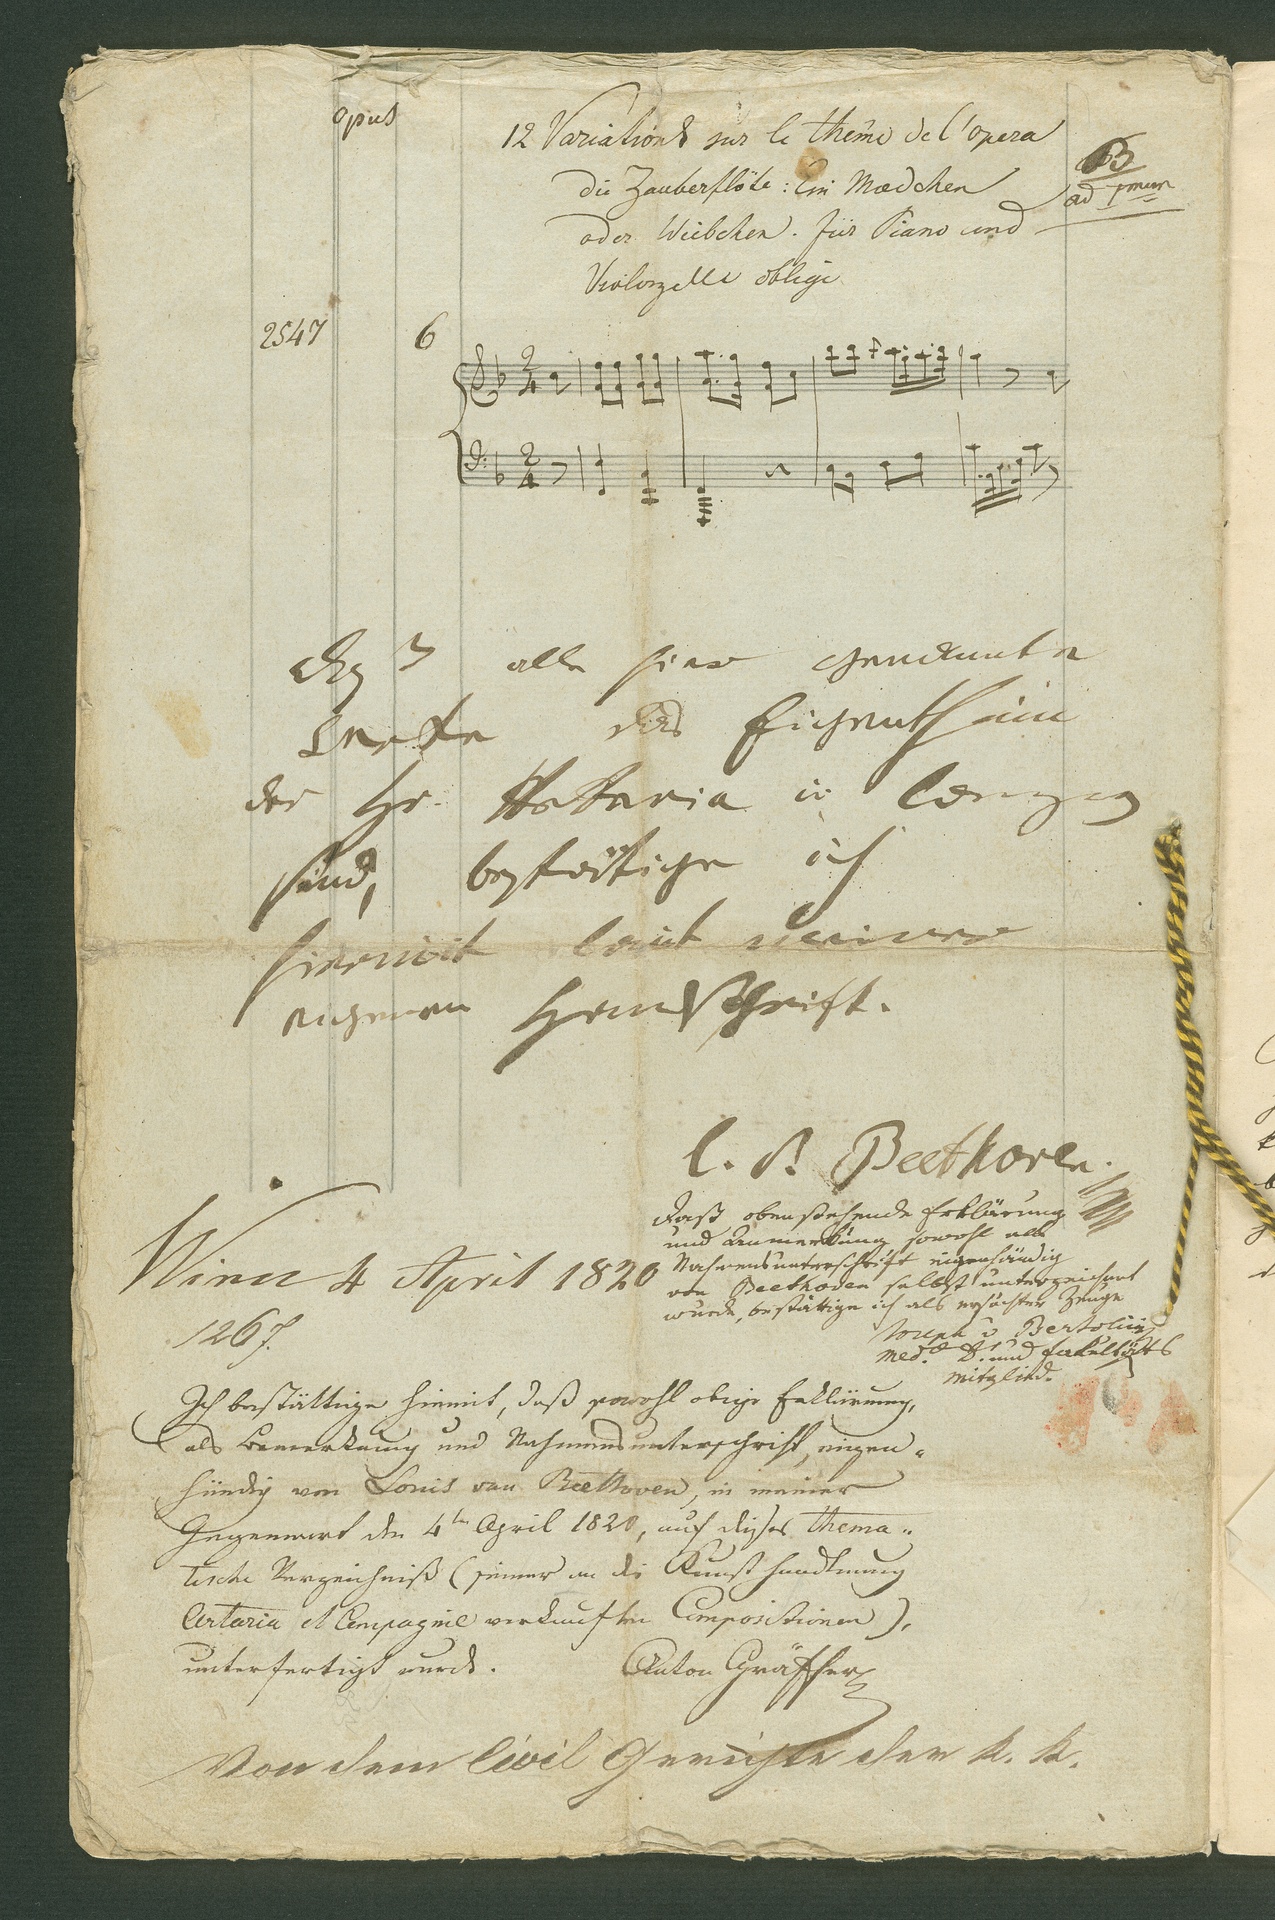 opus
12 Variations sur le thême de l'opera
die Zauberflöte: Ein Mædchen
oder Weibchen. für Piano und
Violonzelle obligé
B
ad 1mum
2547
6
2
4
2
4
daß alle hier genannte
Werke das Eigenthum
der Hr. Artaria u. Compag
sind, bestätige ich
hiermit laut meiner
eigenen Handschrift.
l. v. Beethoven.
Daß obenstehende Erklärung
und Anmerkung sowohl als
Nahmensunterschrift eigenhändig
von Beethoven selbst unterzeichnet
wurde, bestättige ich als ersuchter Zeuge
Joseph v Bertolini
Med. Dr. und Fakultäts
Mitglied.
Wien 4 April 1820
1267.
Ich bestättige hiemit, daß sowohl obige Erklärung,
als Bemerkung und Nahmensunterschrift, eigen=
händig von Louis van Beethoven, in meiner
Gegenwart den 4ten April 1820, auf dieses thema=
tische Verzeichniß (seiner an die Kunsthandlung
Artaria et Compagnie verkauften Compositionen),
unterfertigt wurde. Anton Gräffer
Von dem Civil Gerichte der k. k.